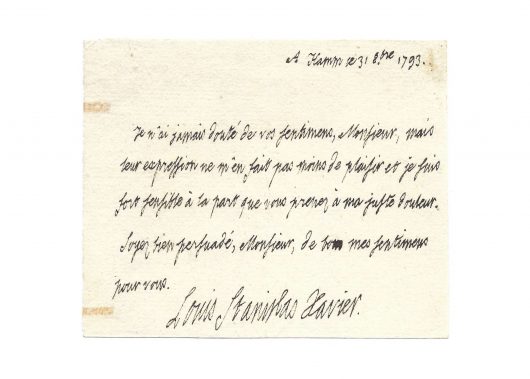 A Hamm ce 31 8.bre 1793.
Je n'ai jamais douté de vos sentimens, Monsieur, mais
leur expression ne m'en fait pas moins de plaisir et je suis
fort sensible à la part que vous prenez à ma juste douleur.
Soyez bien persuadé, Monsieur, de tous mes sentimens
pour vous.
Louis Stanislas Xavier.